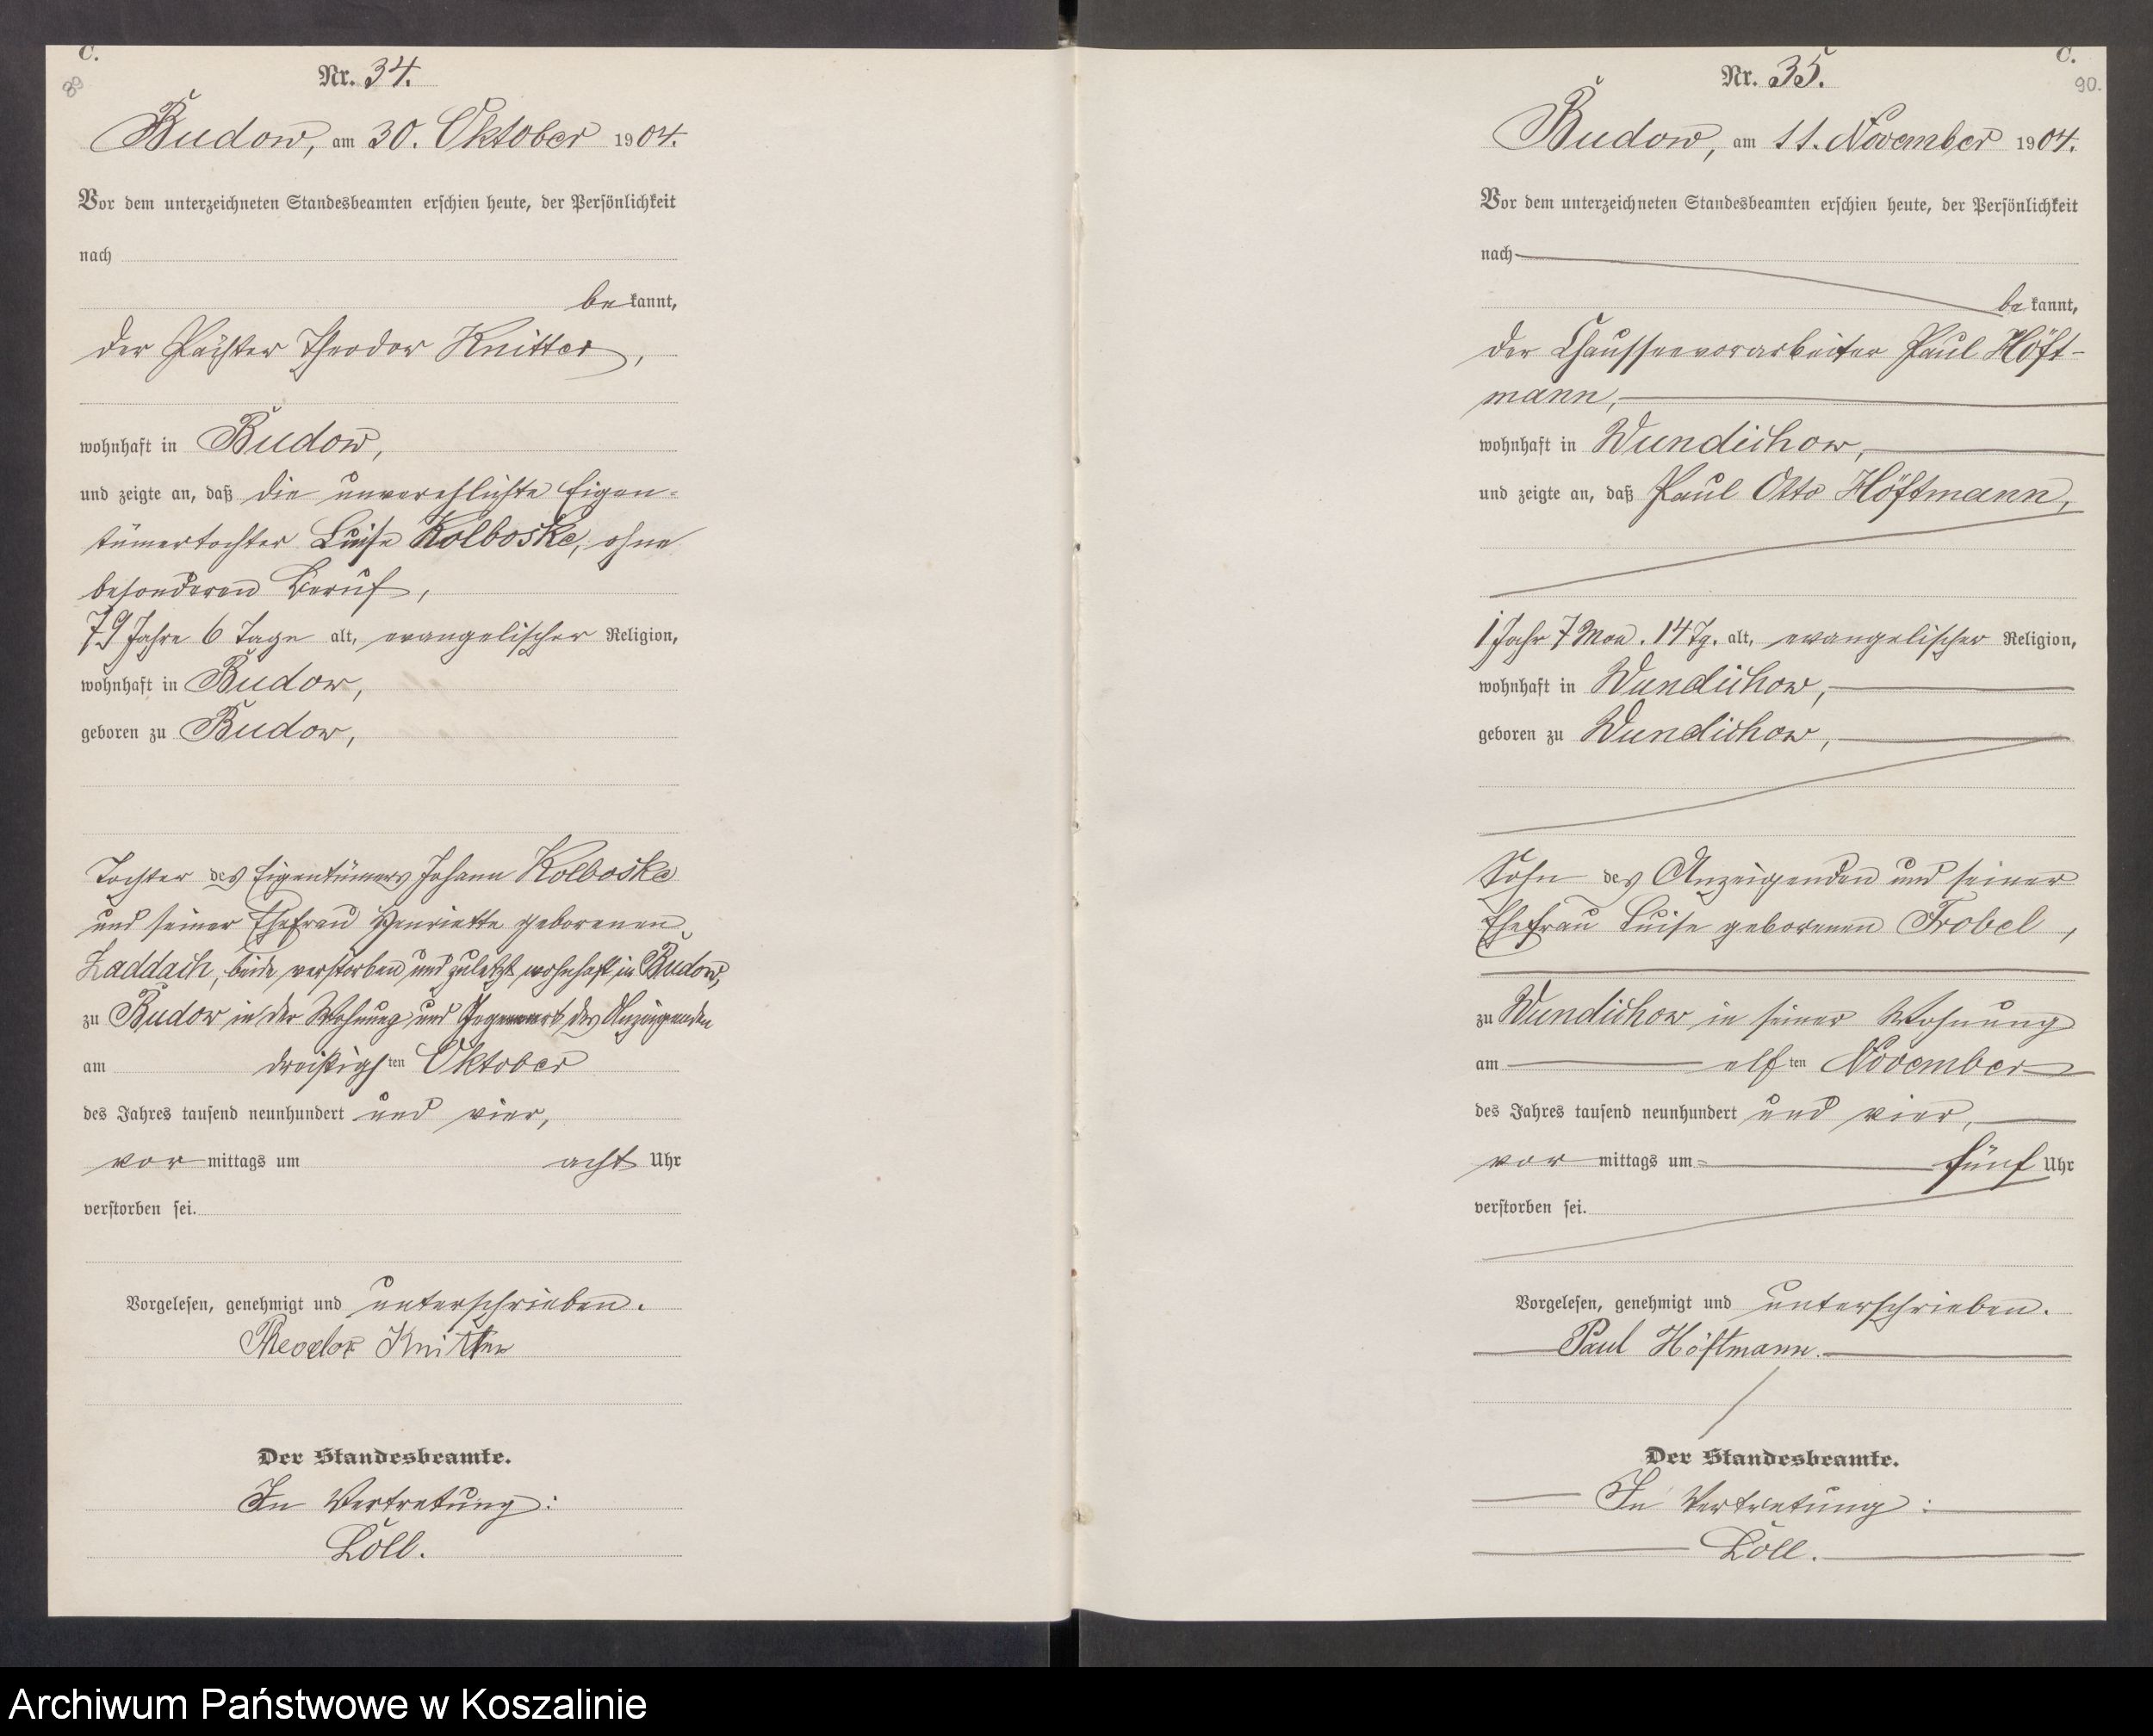 C.
89
Nr. 34.
Budow, am 30. Oktober 1904.
Vor dem unterzeichneten Standesbeamten erschien heute, der Persönlichkeit
nach
bekannt,
der Pächter Theodor Knitter,
wohnhaft in Budow,
und zeigte an, daß die unverehlichte Eigen-
tümertochter Luise Kolboske, ohne
besonderen Beruf,
79 Jahre 6 Tage alt, evangelischer Religion,
wohnhaft in Budow,
geboren zu Budow,
Tochter des Eigentümers Johann Kolboske
und seiner Ehefrau Henriette geborenen
Zaddach, beide verstorben und zuletzt wohnhaft in Budow,
zu Budow in der Wohnung und Gegenwart des Anzeigenden
am dreißigsten Oktober
des Jahres tausend neunhundert und vier,
vormittags um acht Uhr
verstorben sei.
Vorgelesen, genehmigt und unterschrieben.
Theodor Knitter
Der Standesbeamte.
In Vertretung:
Löll.
C.
90.
Nr. 35.
Budow, am 11. November 1904.
Vor dem unterzeichneten Standesbeamten erschien heute, der Persönlichkeit
nach
bekannt,
der Chausseevorarbeiter Paul Höft-
mann,
wohnhaft in Wundichow,
und zeigte an, daß Paul Otto Höftmann,
1 Jahr 7 Mon. 14 Tg. alt, evangelischer Religion,
wohnhaft in Wundichow,
geboren zu Wundichow,
Sohn des Anzeigenden und seiner
Ehefrau Luise geborenen Trobel,
zu Wundichow in seiner Wohnung
am elften November
des Jahres tausend neunhundert und vier,
vormittags um fünf Uhr
verstorben sei.
Vorgelesen, genehmigt und unterschrieben.
Paul Höftmann.
Der Standesbeamte.
In Vertretung:
Löll.
Archiwum Państwowe w Koszalinie